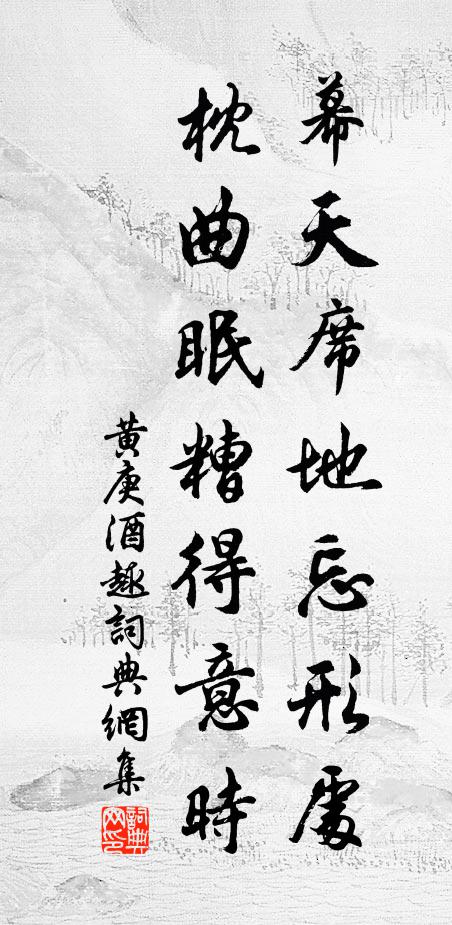 幕天席地忘形處
枕曲眠糟得意時
黃庚酒趣詞典網集
詞典網印